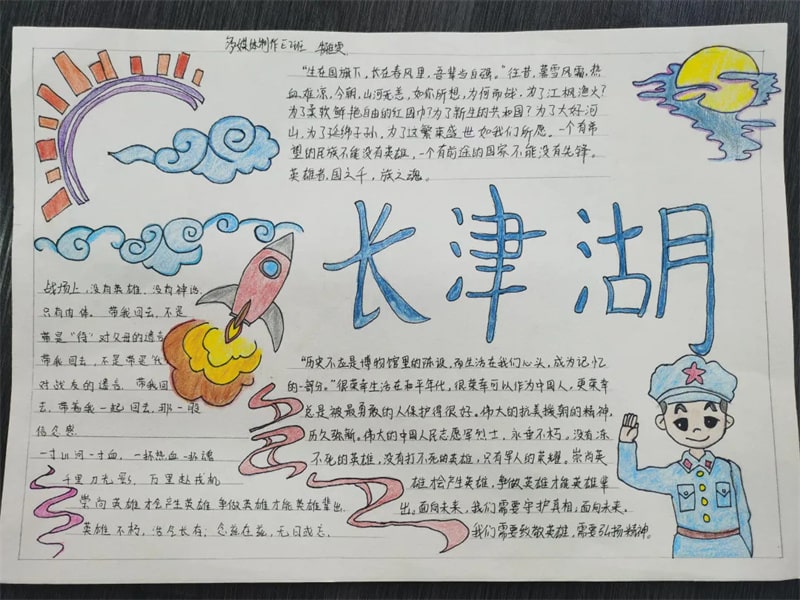 多媒体制作E2班
“生在国旗下，长在春风里，吾辈当自强。”往昔，暮雪风霜，热
血雄凉，今朝，山河无恙，如你所想，为何而战，为了江枫渔火？
为了柔软鲜艳自由的红围巾？为了新生的共和国？为了大好河
山，为了延绵子孙，为了这繁束盛世如我们所愿。一个有希
望的民族不能没有英雄，一个有前途的国家不能没有先锋。
英雄者，国之干，族之魂。
长津湖
战场上，没有英雄，没有神话
只有肉体。带我回去，不是
带是“待”对父母的遗言
带我回去，不是带是
对战友的遗言，带我回
去，带着我一起回去，那一股
信念恩
一寸山河一寸血，一抔热血一抔魂
千里刀光影，万里赴戎机
崇尚英雄才会产生英雄，争做英雄才能英雄辈出
英雄不朽，浩气长存；念兹在兹，无日或忘，
“历史不应是博物馆里的陈设，而生活在我们心头，成为记忆
的一部分。”很荣幸生活在和平年代，很荣幸可以作为中国人，更荣幸
总是被最勇敢的人保护得很好。伟大的抗美援朝的精神，
历久弥新。伟大的中国人民志愿军烈士，永垂不朽，没有冻
不死的英雄，没有打不死的英雄，只有军人的荣耀。崇尚英
雄才会产生英雄，争做英雄才能英雄辈
出。面向未来，我们需要守护真相，面向未来，
我们需要致敬英雄，需要弘扬精神。